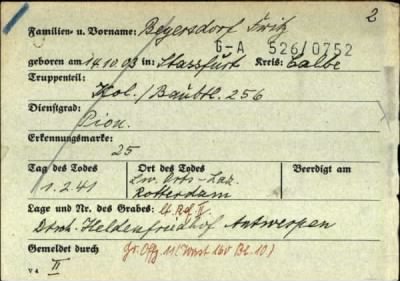 2
Familien- u. Vorname: Beyersdorf Fritz
G-A 526/0752
geboren am 14.10.03 in: Stassfurt Kreis: Calbe
Truppenteil:
Kol./Baubtl. 256
Dienstgrad:
Pion.
Erkennungsmarke:
25
Tag des Todes Ort des Todes Beerdigt am
1.2.41 Lw. Orts-Laz. Rotterdam
Lage und Nr. des Grabes: lt. Ref. II
Dtsch. Heldenfriedhof Antwerpen
Gemeldet durch Gr. Offz. 11 (Wast 160 Bl. 10)
V 4 II